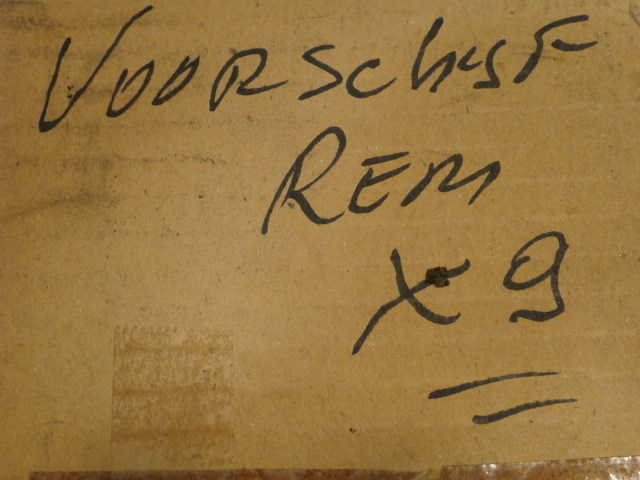 VOORSCHIJF
REM
X 9